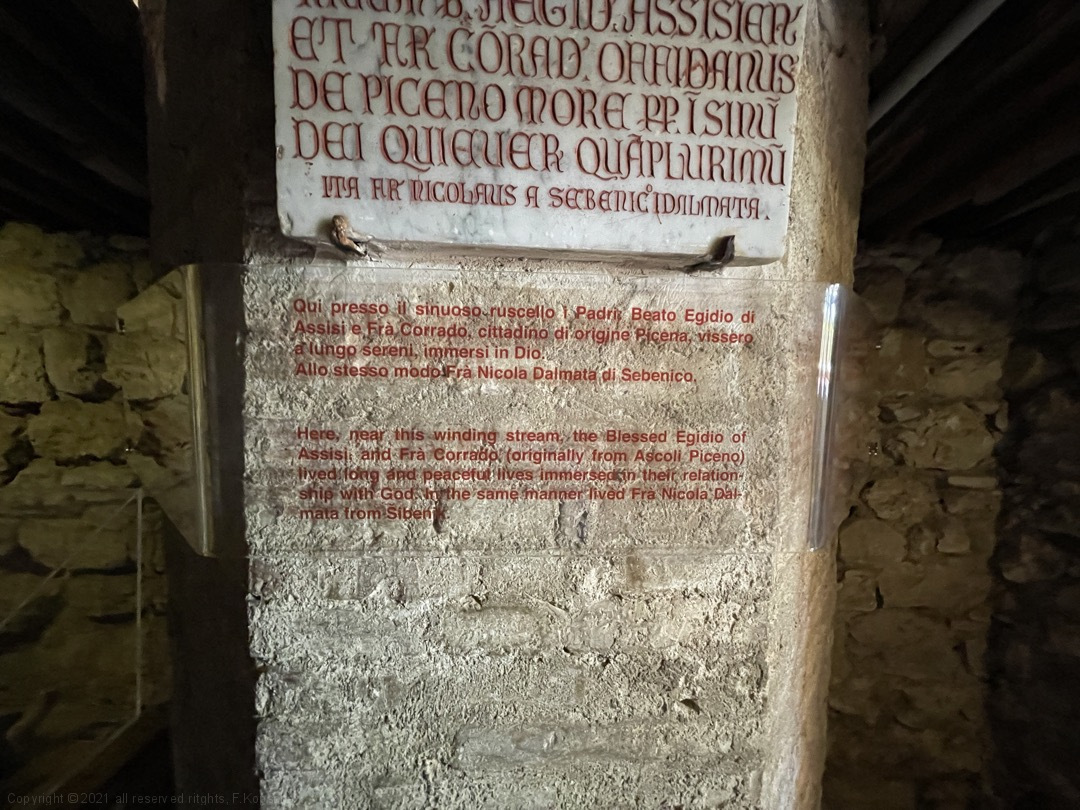 ASSISIEN
ET FR̄ CŌRAD'. OFFIDANUS
DE PICENO MORE PP. Ī SINŪ
DEI QUIEVER QUĀPLURIMŪ
ITA FR̄ NICOLAUS A SEBENIC° DALMATA.
Qui presso il sinuoso ruscello i Padri: Beato Egidio di
Assisi e Frà Corrado, cittadino di origine Picena, vissero
a lungo sereni, immersi in Dio.
Allo stesso modo Frà Nicola Dalmata di Sebenico.
Here, near this winding stream, the Blessed Egidio of
Assisi, and Frà Corrado (originally from Ascoli Piceno)
lived long and peaceful lives immersed in their relation-
ship with God. In the same manner lived Frà Nicola Dal-
mata from Sibenik
Copyright ©2021 all reserved ritghts, F.